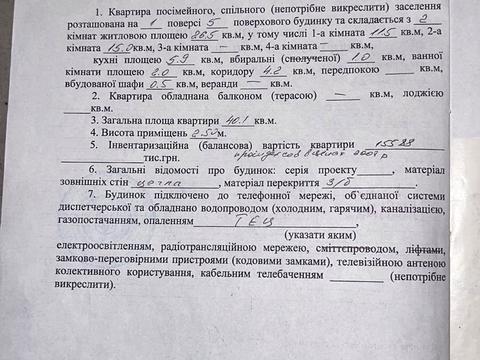 1. Квартира посімейного, спільного (непотрібне викреслити) заселення
розташована на 1 поверсі 5 поверхового будинку та складається з 2
кімнат житловою площею 26,5 кв.м, у тому числі 1-а кімната 11,5 кв.м, 2-а
кімната 15,0 кв.м, 3-а кімната — кв.м, 4-а кімната — кв.м,
кухні площею 5.9 кв.м, вбиральні (сполученої) 1.0 кв.м, ванної
кімнати площею 2.0 кв.м, коридору 4.2 кв.м, передпокою ____ кв.м,
вбудованої шафи 0.5 кв.м, веранди — кв.м.
2. Квартира обладнана балконом (терасою) — кв.м, лоджією
____ кв.м.
3. Загальна площа квартири 40.1 кв.м.
4. Висота приміщень 2.50 м.
5. Інвентаризаційна (балансова) вартість квартири 15588
____ тис.грн. 2007 р
6. Загальні відомості про будинок: серія проекту ____, матеріал
зовнішніх стін цегла, матеріал перекриття З/б.
7. Будинок підключено до телефонної мережі, об'єднаної системи
диспетчерської та обладнано водопроводом (холодним, гарячим), каналізацією,
газопостачанням, опаленням ТЕЦ
(указати яким)
електроосвітленням, радіотрансляційною мережею, сміттєпроводом, ліфтами,
замково-переговірними пристроями (кодовими замками), телевізійною антеною
колективного користування, кабельним телебаченням ____ (непотрібне
викреслити).